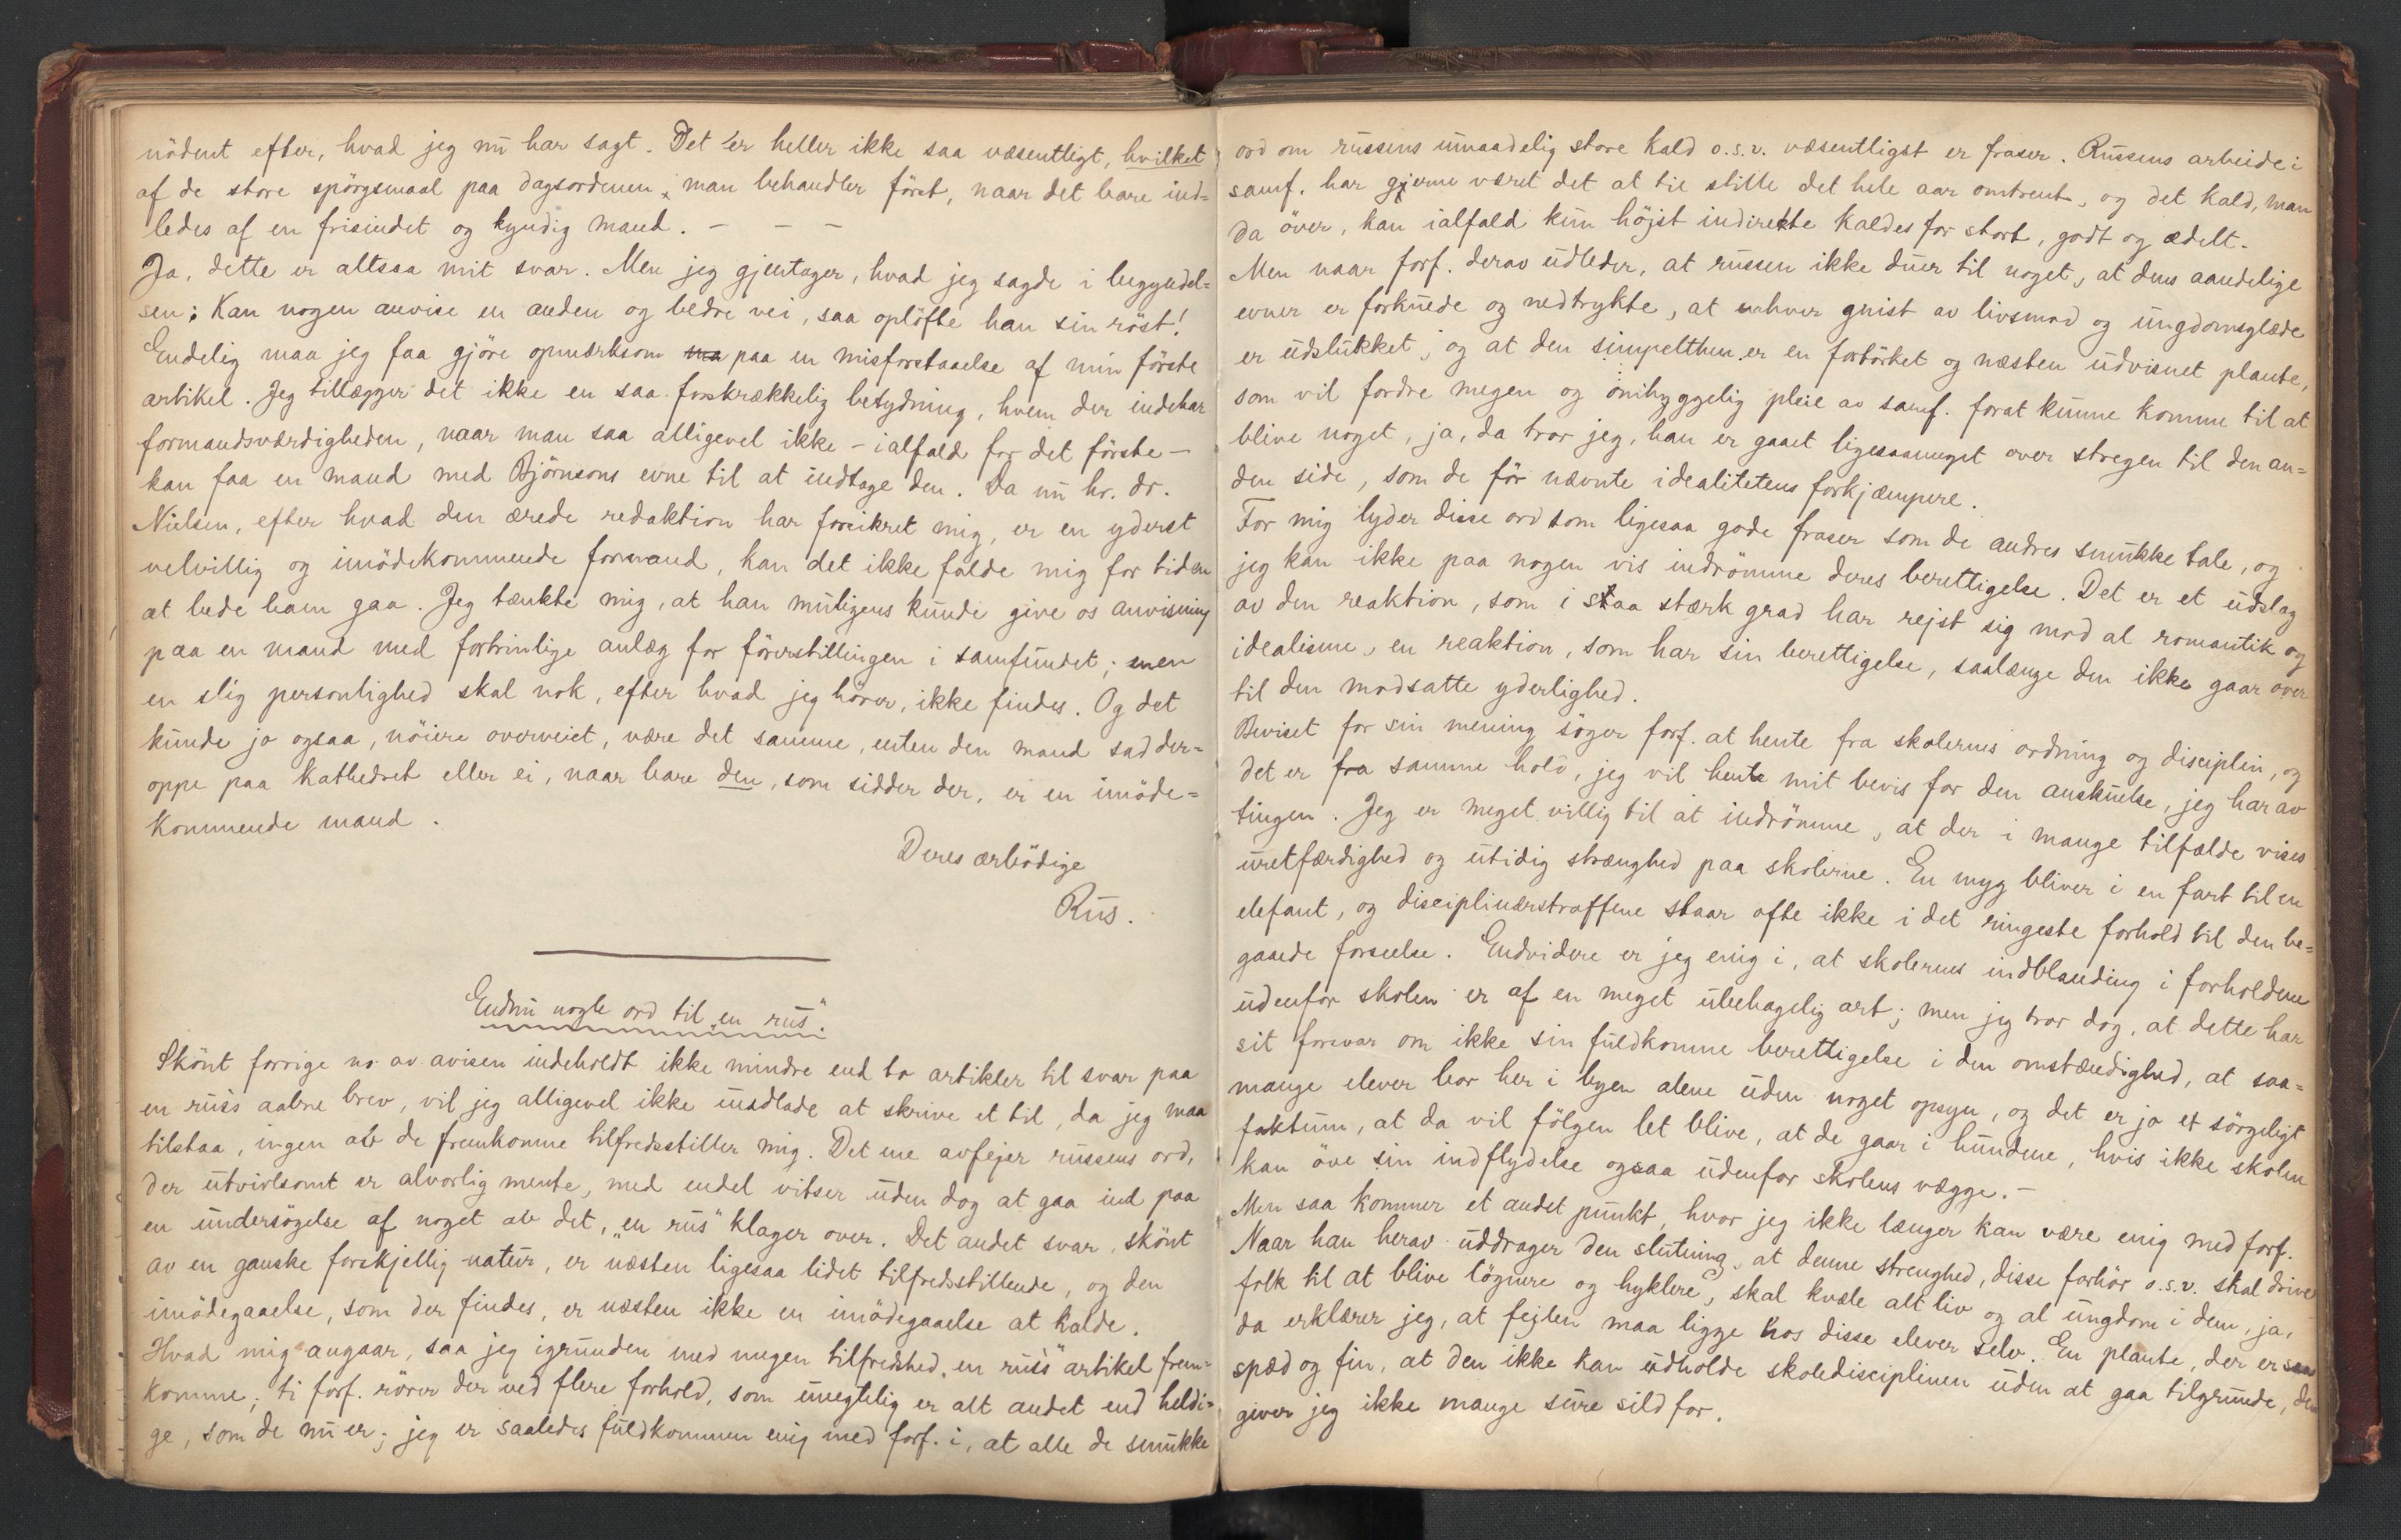 nödent efter, hvad jeg nu har sagt. Det er heller ikke saa væsentligt, hvilket
af de store spörgsmaal paa dagsordenen, man behandler först, naar det bare ind=
ledes af en frisindet og kyndig mand. – – –
Ja, dette er altsaa mit svar. Men jeg gjentager, hvad jeg sagde i begyndel=
sen: Kan nogen anvise en anden og bedre vei, saa oplöfte han sin röst!
Endelig maa jeg faa gjöre opmærksom ma paa en misforstaaelse af min förste
artikel. Jeg tillægger det ikke en saa forskrækkelig betydning, hvem der indehar
formandsværdigheden, naar man saa alligevel ikke – ialfald for det förste –
kan faa en mand med Björnsons evne til at indtage den. Da nu hr. dr.
Nielsen, efter hvad den ærede redaktion har forsikret mig, er en yderst
velvillig og imödekommende formand, kan det ikke falde mig for tiden
at bede ham gaa. Jeg tænkte mig, at han muligens kunde give os anvisning
paa en mand med fortrinlige anlæg for förerstillingen i samfundet; men
en slig personlighed skal nok, efter hvad jeg hörer, ikke findes. Og det
kunde jo ogsaa, nöiere overveiet, være det samme, enten den mand sad der=
oppe paa kathedret eller ei, naar bare den, som sidder der, er en imöde=
kommende mand.
Deres ærbödige
Rus.
Endnu nogle ord til „en rus“.
Skönt forrige no av avisen indeholdt ikke mindre end to artikler til svar paa
en rus's aabne brev, vil jeg alligevel ikke undlade at skrive et til, da jeg maa
tilstaa, ingen av de fremkomne tilfredsstiller mig. Det ene avfejer russens ord,
der utvivlsomt er alvorlig mente, med endel vitser uden dog at gaa ind paa
en undersögelse af noget av det, „en rus“ klager over. Det andet svar, skönt
av en ganske forskjellig natur, er næsten ligesaa lidet tilfredsstillende, og den
imödegaaelse, som der findes, er næsten ikke en imödegaaelse at kalde.
Hvad mig angaar, saa jeg igrunden med megen tilfredshed „en rus's“ artikel frem=
komme; ti forf. rörer der ved flere forhold, som unegtelig er alt andet end heldi=
ge, som de nu er; jeg er saaledes fuldkommen enig med forf. i, at alle de smukke
ord om russens umaadelig store kald o.s.v. væsentligst er fraser. Russens arbeide i
samf. har gjerne været det at tie stille det hele aar omtrent, og det kald, man
da över, kan ialfald kun höjst indirekte kaldes for stort, godt og ædelt.
Men naar forf. derav udleder, at russen ikke duer til noget, at dens aandelige
evner er forknede og nedtrykte, at enhver gnist av livsmod og ungdomsglæde
er udslukket, og at den simpelthen er en fortörket og næsten udvisnet plante,
som vil fordre megen og omhyggelig pleie av samf. forat kunne komme til at
blive noget, ja, da tror jeg, han er gaaet ligesaameget over stregen til den an=
den side, som de för nævnte idealitetens forkjæmpere.
For mig lyder disse ord som ligesaa gode fraser som de andres smukke tale, og
jeg kan ikke paa nogen vis indrömme deres berettigelse. Det er et udslag
av den reaktion, som i saa stærk grad har rejst sig mod al romantik og
idealisme, en reaktion, som har sin berettigelse, saalænge den ikke gaar over
til den modsatte yderlighed.
Beviset for sin mening söger forf. at hente fra skolernes ordning og disciplin, og
det er fra samme hold, jeg vil hente mit bevis for den anskuelse, jeg har av
tingen. Jeg er meget villig til at indrömme, at der i mange tilfælde vises
uretfærdighed og utidig strænghed paa skolerne. En myg bliver i en fart til en
elefant, og disciplinærstraffene staar ofte ikke i det ringeste forhold til den be=
gaaede forseelse. Endvidere er jeg enig i, at skolernes indblanding i forholdene
udenfor skolen er af en meget ubehagelig art; men jeg tror dog, at dette har
sit forsvar om ikke sin fuldkomne berettigelse i den omstændighed, at saa=
mange elever bor her i byen alene uden noget opsyn, og det er jo et sörgeligt
faktum, at da vil fölgen let blive, at de gaar i hundene, hvis ikke skolen
kan öve sin indflydelse ogsaa udenfor skolens vægge. –
Men saa kommer et andet punkt, hvor jeg ikke længer kan være enig med forf.
Naar han herav uddrager den slutning, at denne strenghed, disse forhör o.s.v. skal drive
folk til at blive lögnere og hyklere, skal kvæle alt liv og al ungdom i dem, ja,
da erklærer jeg, at fejlen maa ligge hos disse elever selv. En plante, der er saa
spæd og fin, at den ikke kan udholde skoledisciplinen uden at gaa tilgrunde, den
giver jeg ikke mange sure sild for.